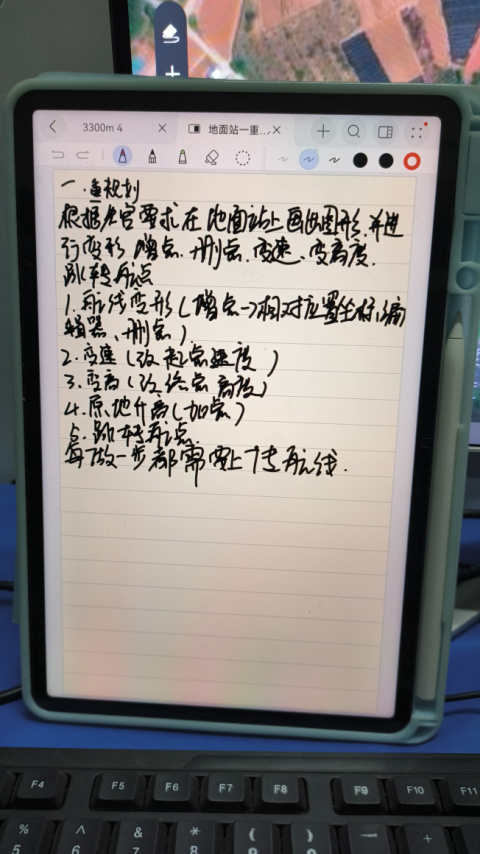 3300m 4
地面站一重...
一.重规划
根据考官需求在地面站上画出图形,并进
行变形 增点.删点.变速、变高度.
跳转航点
1.航线变形(增点→相对位置坐标,编
辑器、删点).
2.变速(改起点速度)
3.变高(改终点高度)
4.原地升高(加点)
5.跳转航点.
每做一步都需要上传航线.
F4 F5 F6 F7 F8 F9 F10 F11
% 5 ^ 6 & 7 * 8 ( 9 ) 0 — - + =